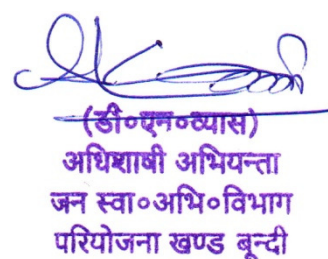 (डी०एन०व्यास)
अधिशाषी अभियन्ता
जन स्वा०अभि०विभाग
परियोजना खण्ड बून्दी